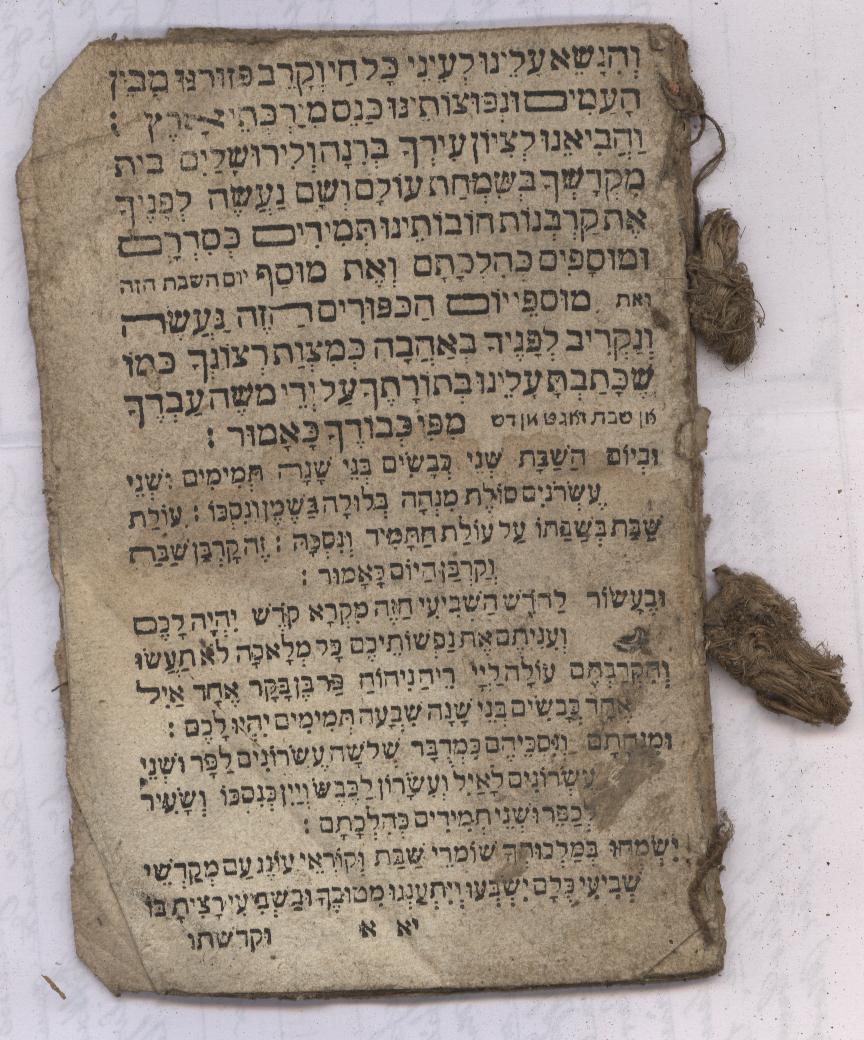 וְהִנָּשֵׂא עָלֵינוּ לְעֵינֵי כָּל חַי וְקָרֵב פְּזוּרֵנוּ מִבֵּין
הָעַמִים וּנְפוּצוֹתֵינוּ כַּנֵּס מִיַּרְכְּתֵי אָרֶץ :
וַהֲבִיאֵנוּ לְצִיּוֹן עִירְךָ בְּרִנָּה וְלִירוּשָׁלַיִם בֵּית
מִקְדָּשְׁךָ בְּשִׂמְחַת עוֹלָם וְשָׁם נַעֲשֶׂה לְפָנֶיךָ
אֶת קָרְבְּנוֹת חוֹבוֹתֵינוּ תְּמִידִים כְּסִדְרָם
וּמוּסָפִים כְּהִלְכָתָם וְאֶת מוּסַף יום השבת הזה
ואת מוּסְפֵי יוֹם הַכִּפּוּרִים הַזֶה נַּעֲשֶׂה
וְנַקְרִיב לְפָנֶיךָ בְּאַהֲבָה כְּמִצְוַת רְצוֹנֶךָ כְּמוֹ
שֶׁכָּתַבְתָּ עָלֵינוּ בְּתוֹרָתֶךָ עַל יְדֵי משֶׁה עַבְדֶּךָ
אן שבת זאגט אן דש מִפִּי כְּבוֹדֶךָ כָּאָמוּר :
וּבְיוֹם הַשַּׁבָּת שְׁנֵי כְּבָשִׂים בְּנֵי שָׁנָה תְּמִימִים וּשְׁנֵי
עֶשְׂרֹנִים סוֹלֶת מִנְחָה בְּלוּלָה בַשֶּׁמֶן וְנִסְכּוֹ : עוֹלַת
שַׁבַּת בְּשַׁבַּתּוֹ עַל עוֹלַת הַתָּמִיד וְנִסְכָּהּ : זֶה קָרְבַּן שַׁבַּת
וְקָרְבַּן הַיוֹם כָּאָמוּר :
וּבֶעָשׂוֹר לַחֹדֶשׁ הַשְּׁבִיעִי הַזֶּה מִקְרָא קֹדֶשׁ יִהְיֶה לָכֶם
וְעִנִּיתֶם אֶת נַפְשׁוֹתֵיכֶם כָּל מְלָאכָה לֹא תַעֲשׂוּ
וְהִקְרַבְתֶּם עוֹלָה לַיְיָ רֵיחַ נִיחוֹחַ פַּר בֶּן בָּקָר אֶחָד אַיִל
אֶחָד כְּבָשִׂים בְּנֵי שָׁנָה שִׁבְעָה תְּמִימִים יִהְיוּ לָכֶם :
וּמִנְחָתָם וְנִסְכֵּיהֶם כִּמְדֻבָּר שְׁלשָׁה עֶשְׂרוֹנִים לַפָּר וּשְׁנֵי
עֶשְׂרוֹנִים לָאַיִל וְעִשָּׂרוֹן לַכֶּבֶשׂ וְיַיִן כְּנִסְכּוֹ וְשָׂעִיר
לְכַפֵּר וּשְׁנֵי תְמִידִים כְּהִלְכָתָם :
יִשְׂמְחוּ בְּמַלְכוּתְךָ שׁוֹמְרֵי שַׁבָּת וְקוֹרְאֵי עוֹנֶג עַם מְקַדְּשֵׁי
שְׁבִיעִי כֻּלָּם יִשְׂבְּעוּ וְיִתְעַנְּגוּ מִטּוּבֶךָ וּבַשְּׁבִיעִי רָצִיתָ בּוֹ
יא א וקדשתו